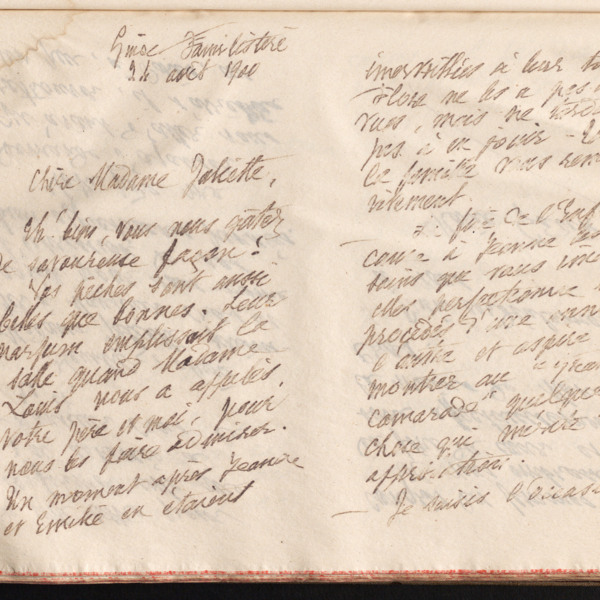 Guise Familistère
24 août 1900
Chère Madame Dallet,
Eh! bien, vous nous gâtez
de savoureuse façon!
Vos pêches sont aussi
belles que bonnes. Leur
parfum emplissait la
salle quand Madame
Louis nous a appelés,
votre père et moi, pour
nous les faire admirer.
Un moment après Jeanne
et Emilie en étaient
émerveillées à leur
Flore ne les a pas
vues, mais ne
pas à en jouir
la famille vous
vivement.
La fête de l'Enf
à Jeanne
soins que vous
elles perfectionne
procédés d'une
à l'autre et aspire
montrer au
camarade" quelque
chose qui mérite
approbation.
Je saisis l'occas